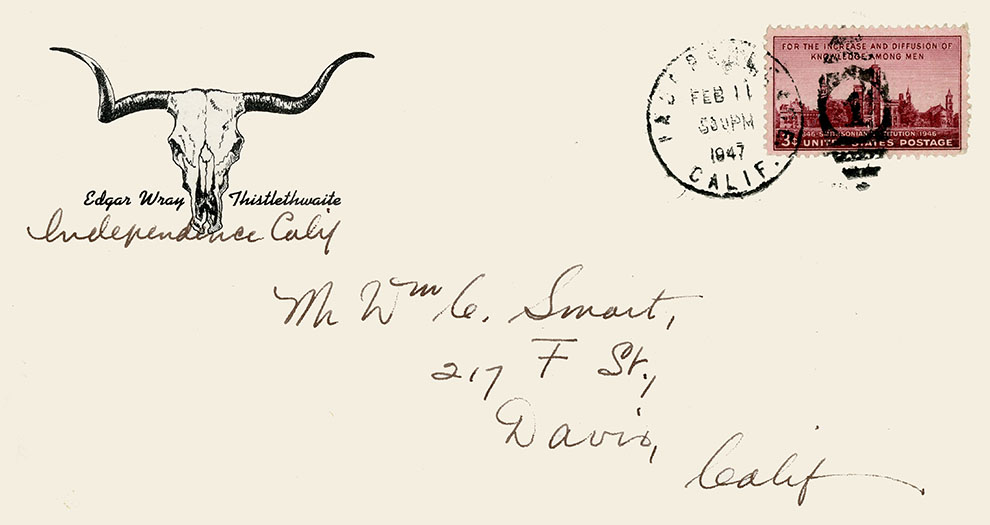 Edgar Wray Thistlethwaite
Independence Calif
FEB 11
PM
1947
CALIF.
FOR THE INCREASE AND DIFFUSION OF
KNOWLEDGE AMONG MEN
SMITHSONIAN INSTITUTION 1946
3¢ UNITED STATES POSTAGE
Mr Wm C. Smart,
217 F St.,
Davis,
Calif